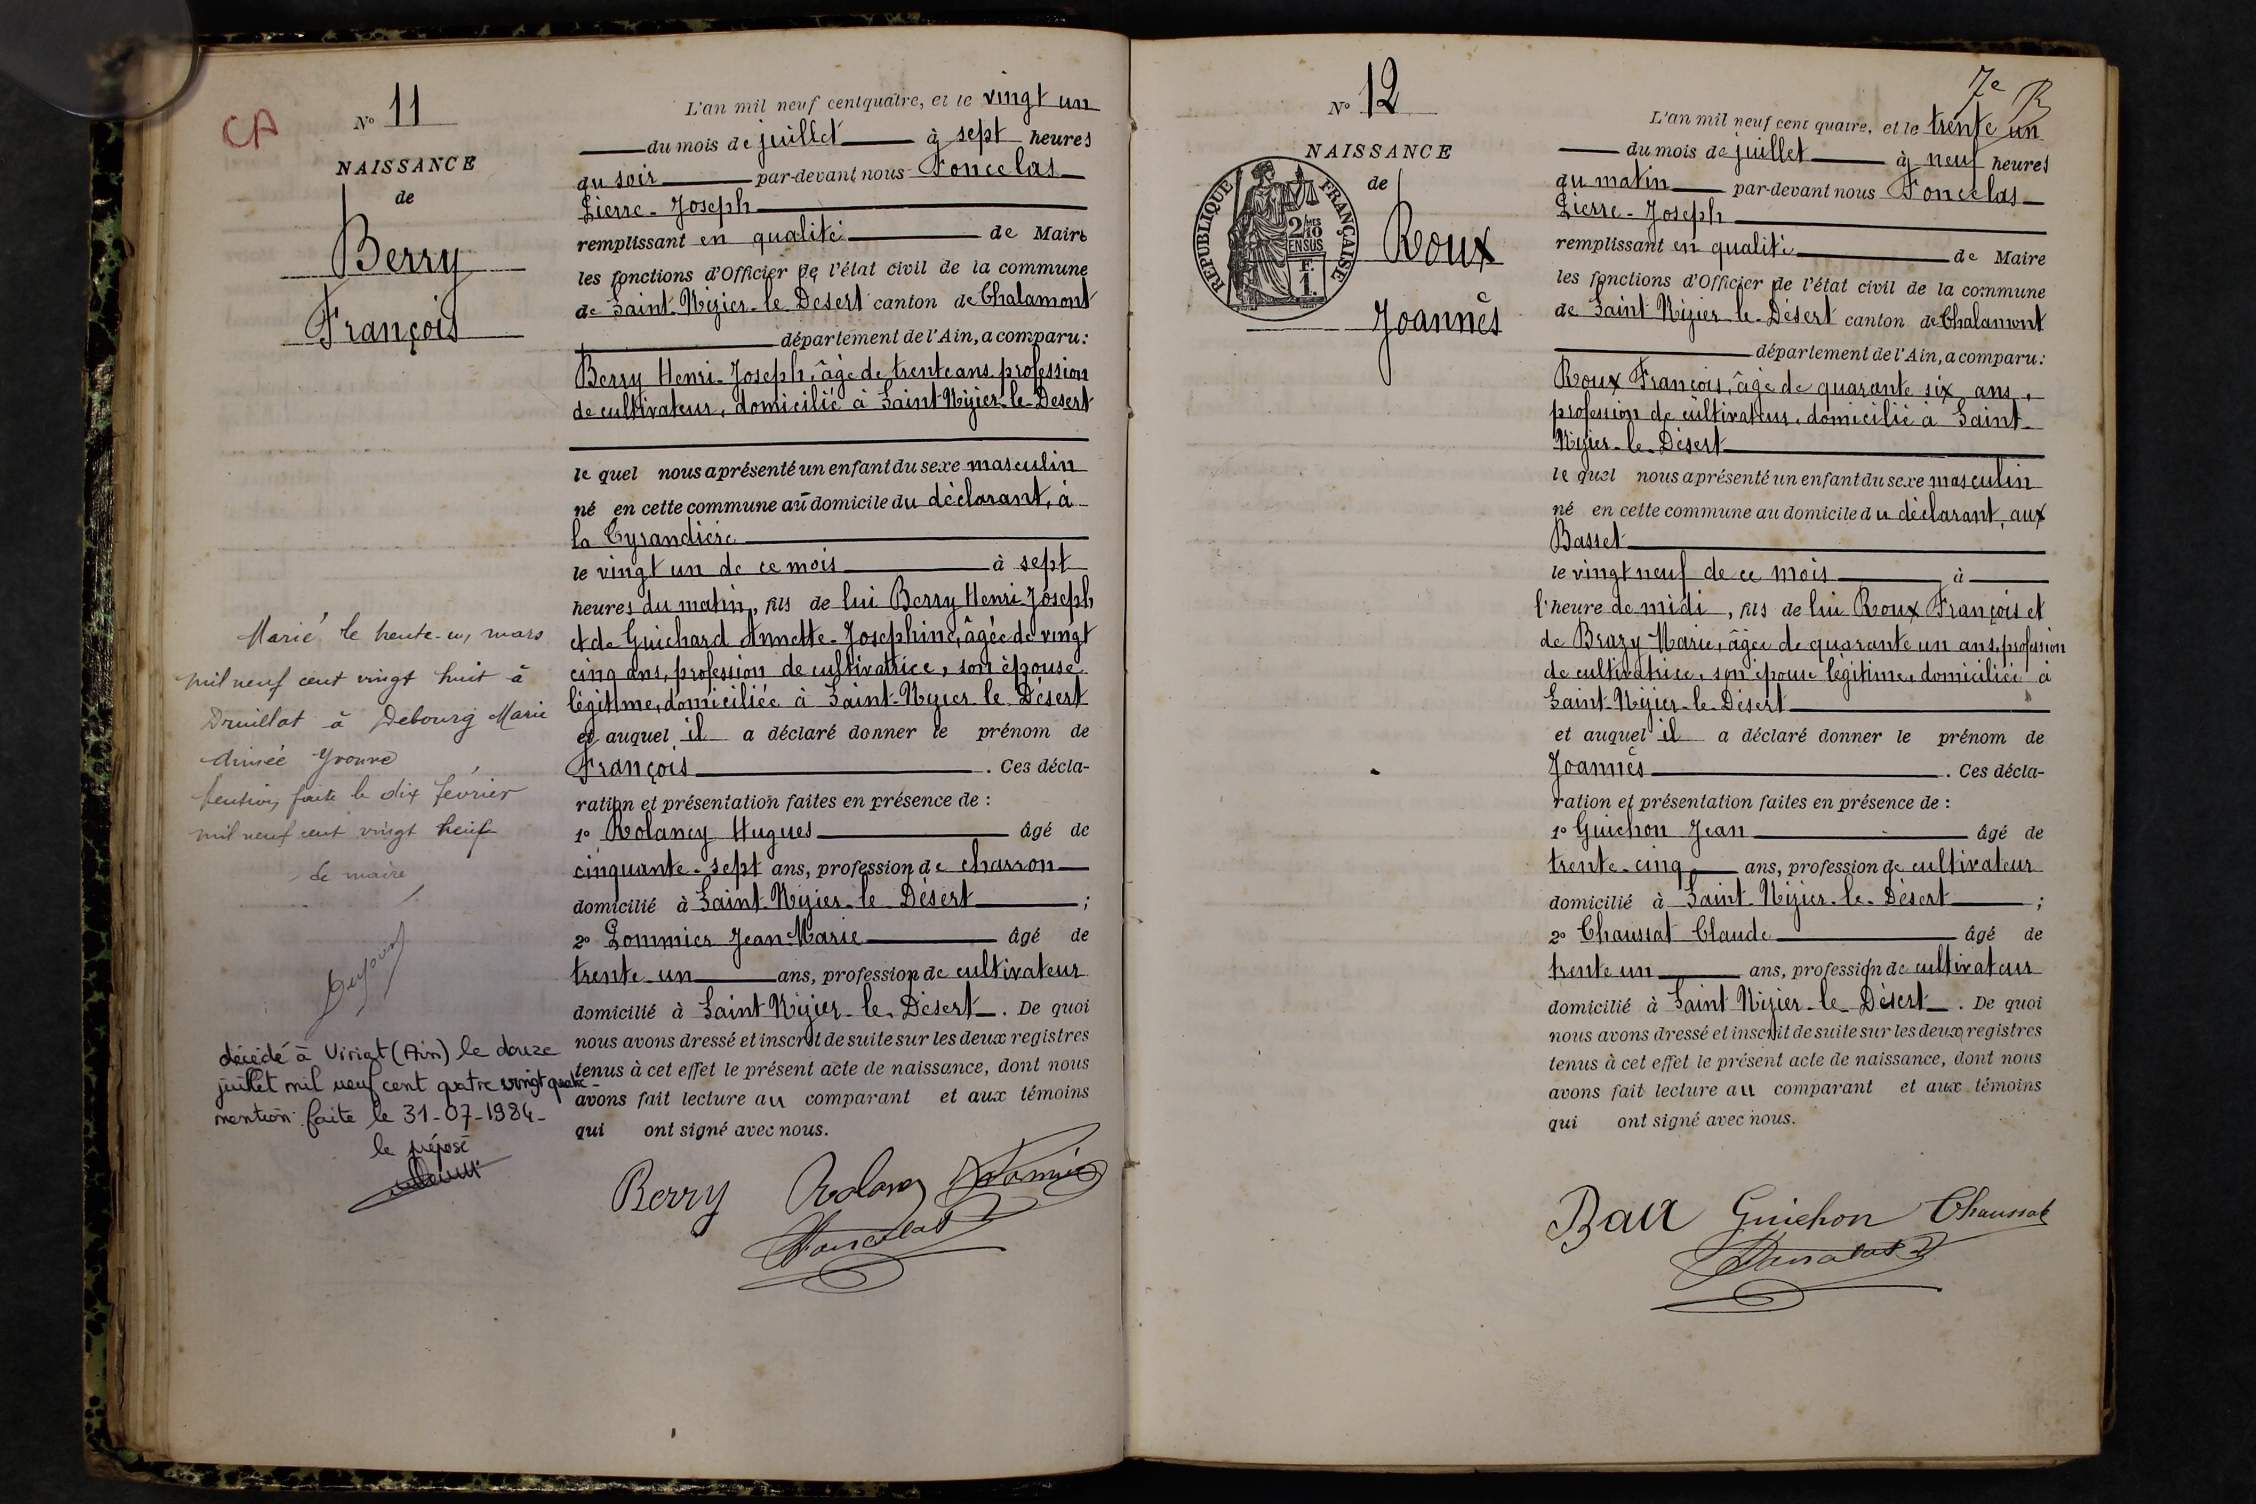 CA
N° 11
NAISSANCE
de
Berry
François
L'an mil neuf cent quatre, et le vingt un
du mois de juillet à sept heures
du soir par-devant nous Foncelas
Pierre-Joseph
remplissant en qualité de Maire
les fonctions d'Officier de l'état civil de la commune
de Saint-Nizier-le-Désert canton de Chalamont
département de l'Ain, a comparu:
Berry Henri-Joseph, âgé de trente ans, profession
de cultivateur, domicilié à Saint-Nizier-le-Désert
le quel nous a présenté un enfant du sexe masculin
né en cette commune au domicile du déclarant, à
la Tyrandière
le vingt un de ce mois à sept
heures du matin, fils de lui Berry Henri-Joseph
et de Guichard Annette-Josephine, âgée de vingt
cinq ans, profession de cultivatrice, son épouse
légitime, domiciliée à Saint-Nizier le Désert
et auquel il a déclaré donner le prénom de
François. Ces décla-
ration et présentation faites en présence de :
1° Rolancy Hugues âgé de
cinquante-sept ans, profession de charron
domicilié à Saint-Nizier-le Désert ;
2° Pommier Jean-Marie âgé de
trente-un ans, profession de cultivateur
domicilié à Saint-Nizier-le-Désert. De quoi
nous avons dressé et inscrit de suite sur les deux registres
tenus à cet effet le présent acte de naissance, dont nous
avons fait lecture au comparant et aux témoins
qui ont signé avec nous.
Berry Rolancy
Foncelas
Marié le trente-un mars
mil neuf cent vingt huit à
Druillat à Debourg Marie
Aimée Yvonne
Mention faite le dix février
mil neuf cent vingt neuf
Le maire
décédé à Viriat (Ain) le douze
juillet mil neuf cent quatre vingt quatre-
mention faite le 31-07-1984-
le préposé
7e
N° 12
NAISSANCE
de
Roux
Joannès
RÉPUBLIQUE FRANÇAISE
2/10
MES
EN SUS
F.
1.
L'an mil neuf cent quatre, et le trente un
du mois de juillet à neuf heures
du matin par-devant nous Foncelas
Pierre-Joseph
remplissant en qualité de Maire
les fonctions d'Officier de l'état civil de la commune
de Saint-Nizier-le-Désert canton de Chalamont
département de l'Ain, a comparu:
Roux François, âgé de quarante six ans,
profession de cultivateur, domicilié à Saint-
Nizier-le-Désert
le quel nous a présenté un enfant du sexe masculin
né en cette commune au domicile du déclarant, aux
Basset
le vingt neuf de ce mois à
l'heure de midi, fils de lui Roux François et
de Brazy Marie, âgée de quarante un ans, profession
de cultivatrice, son épouse légitime, domiciliée à
Saint-Nizier-le-Désert
et auquel il a déclaré donner le prénom de
Joannès. Ces décla-
ration et présentation faites en présence de :
1° Guichon Jean âgé de
trente-cinq ans, profession de cultivateur
domicilié à Saint-Nizier-le-Désert ;
2° Chaussat Claude âgé de
trente un ans, profession de cultivateur
domicilié à Saint Nizier-le-Désert. De quoi
nous avons dressé et inscrit de suite sur les deux registres
tenus à cet effet le présent acte de naissance, dont nous
avons fait lecture au comparant et aux témoins
qui ont signé avec nous.
Guichon Chaussat